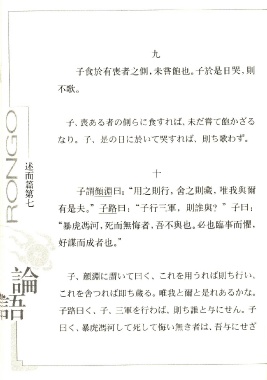 九
子食於有喪者之側，未嘗飽也。子於是日哭，則
不歌。
子、喪ある者の側らに食すれば、未だ嘗て飽かざる
なり。子、是の日に於いて哭すれば、則ち歌わず。
十
子謂顏淵曰：“用之則行，舍之則藏，唯我與爾
有是夫。”子路曰：“子行三軍，則誰與？”子曰：
“暴虎馮河，死而無悔者，吾不與也。必也臨事而懼，
好謀而成者也。”
子、顔淵に謂いて曰く、これを用うれば則ち行い、
これを舎つれば即ち蔵る。唯我と爾と是れあるかな。
子路曰く、子、三軍を行わば、則ち誰と与にせん。子
曰く、暴虎馮河して死して悔い無き者は、吾与にせざ
RONGO
述而篇第七
論語